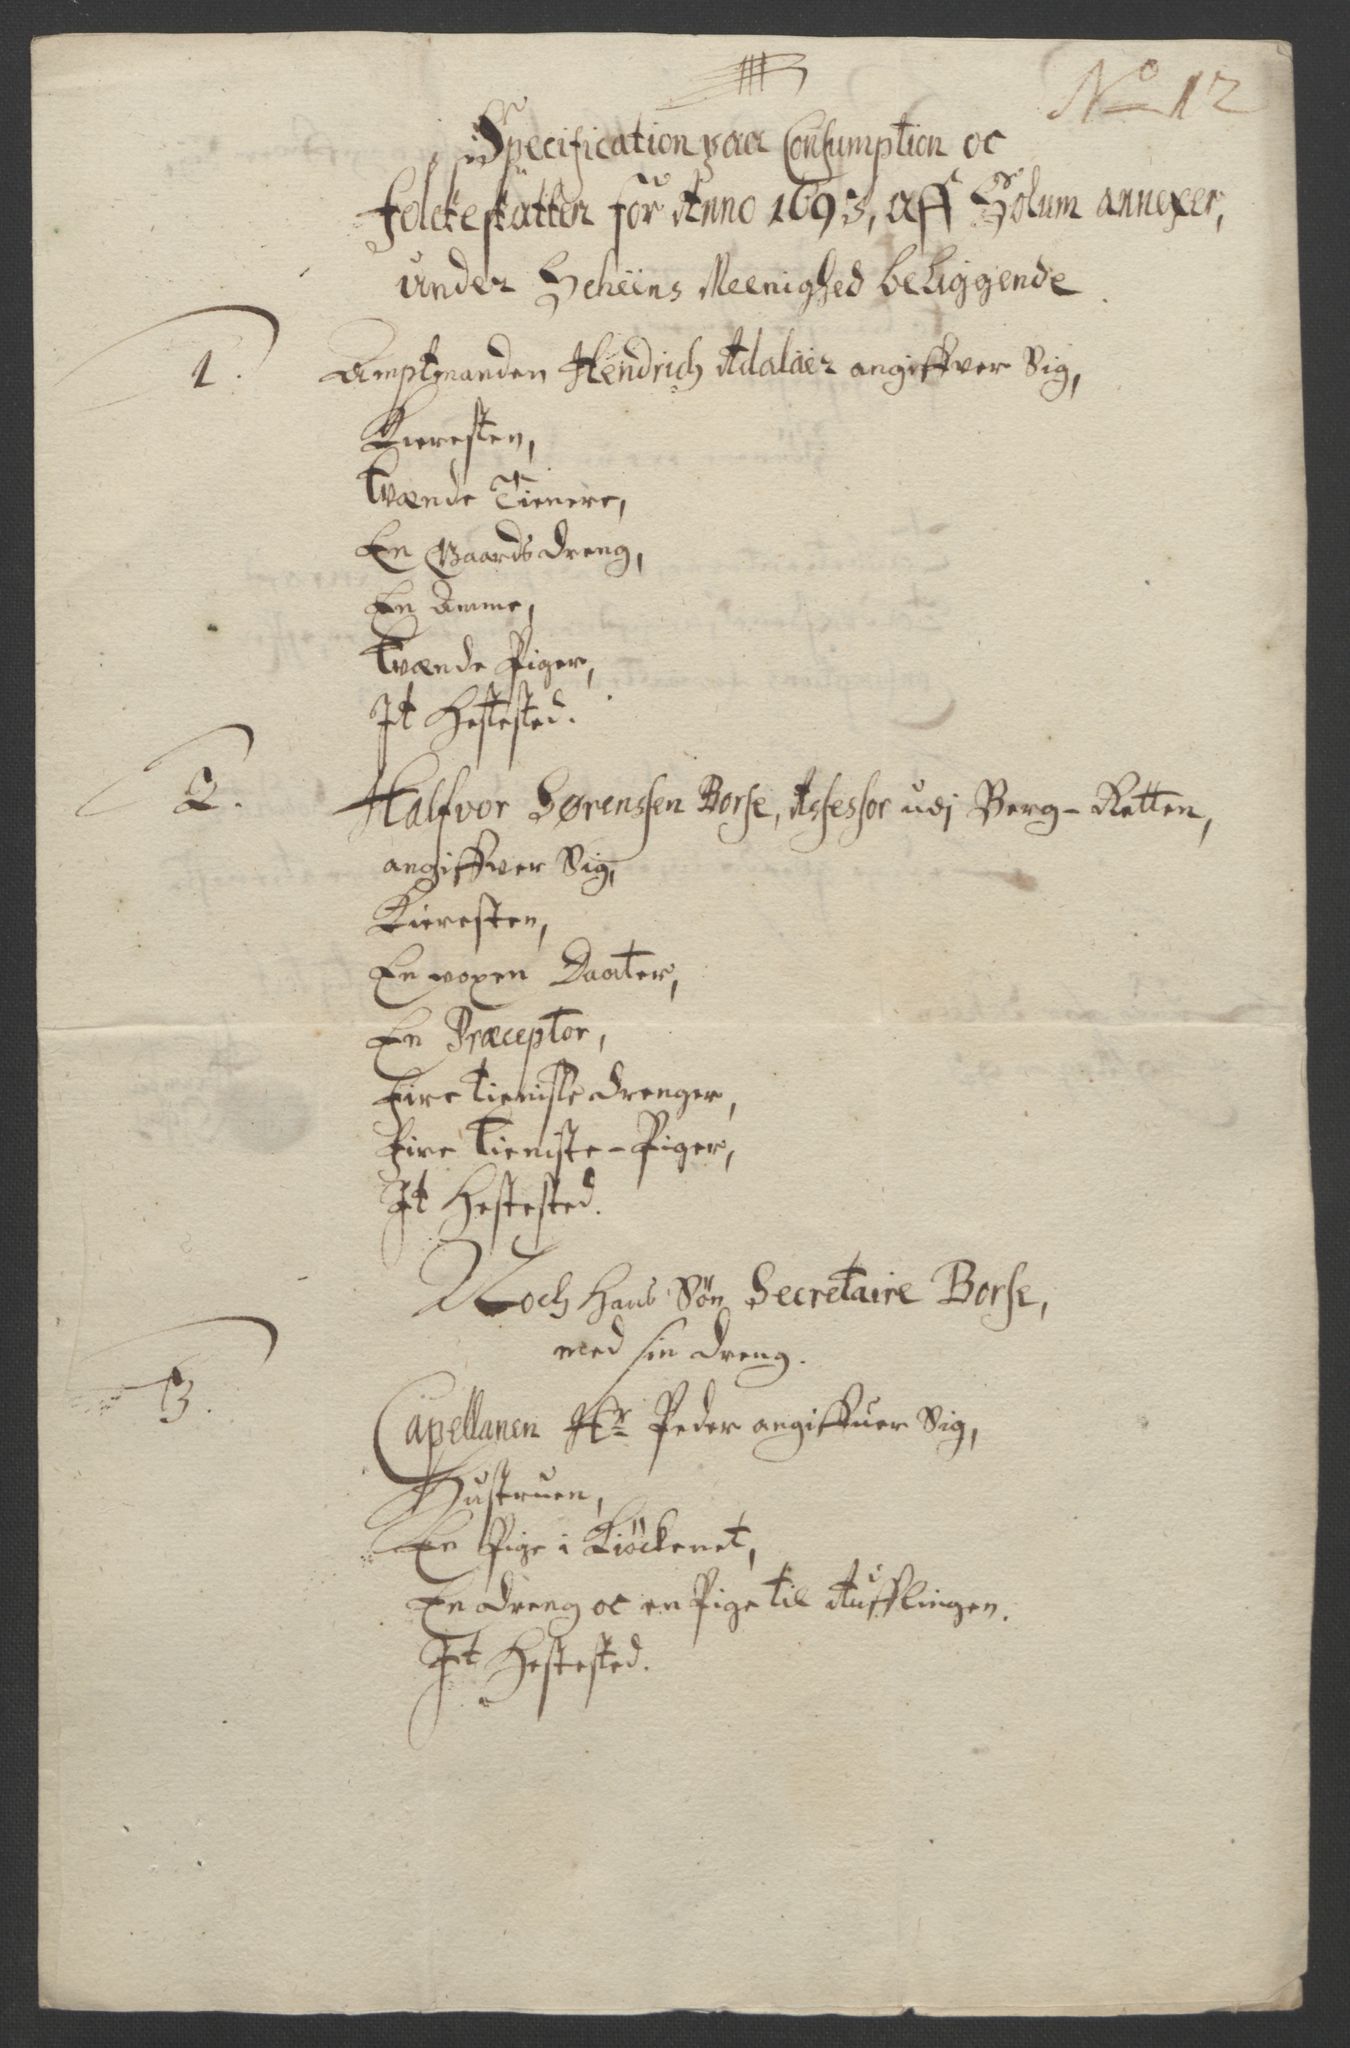 No 12
Specification paa Consumption oc
Folckeskatter for Anno 1693, aff Solum annexer,
under Scheens Meenighed beliggende.
1. Amptmanden Hendrich Adalaer angiffver Sig,
Kieresten,
Tvende Tienere,
En Gaards dreng,
En Amme,
Tvende Piger,
It Hestested.
2. Halfvor Sørenssen Borse, Assessor udj Berg-Retten,
angiffver Sig,
Kieresten,
En voxen Daater,
En Præceptor,
Fire Tieniste drenger,
Fire Tieniste-Piger,
It Hestested.
Noch hans Søn Secretaire Borse,
med sin dreng.
3. Capellanen Hr Peder angiffuer Sig,
Hustruen,
En Pige i Kiöckenet,
En dreng oc en Pige til Aufflingen.
It Hestested.